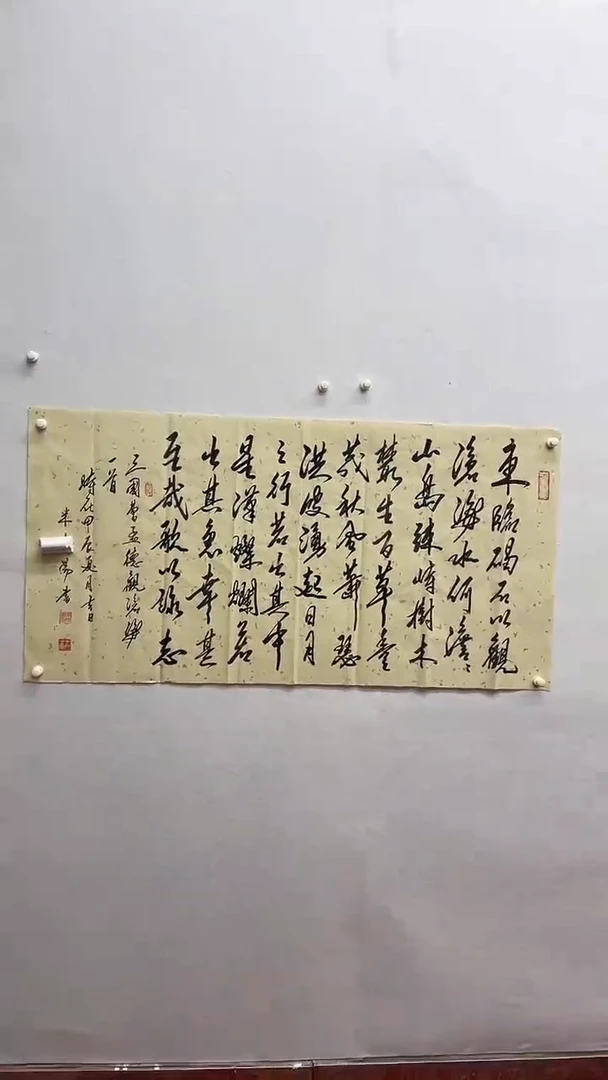 東臨碣石以觀
滄海水何澹〻
山島竦峙樹木
叢生百草豐
茂秋風蕭瑟
洪波湧起日月
之行若出其中
星漢燦爛若
出其裏幸甚
至哉歌以詠志
三國曹孟德觀滄海
一首
時在甲辰夏月吉日
書